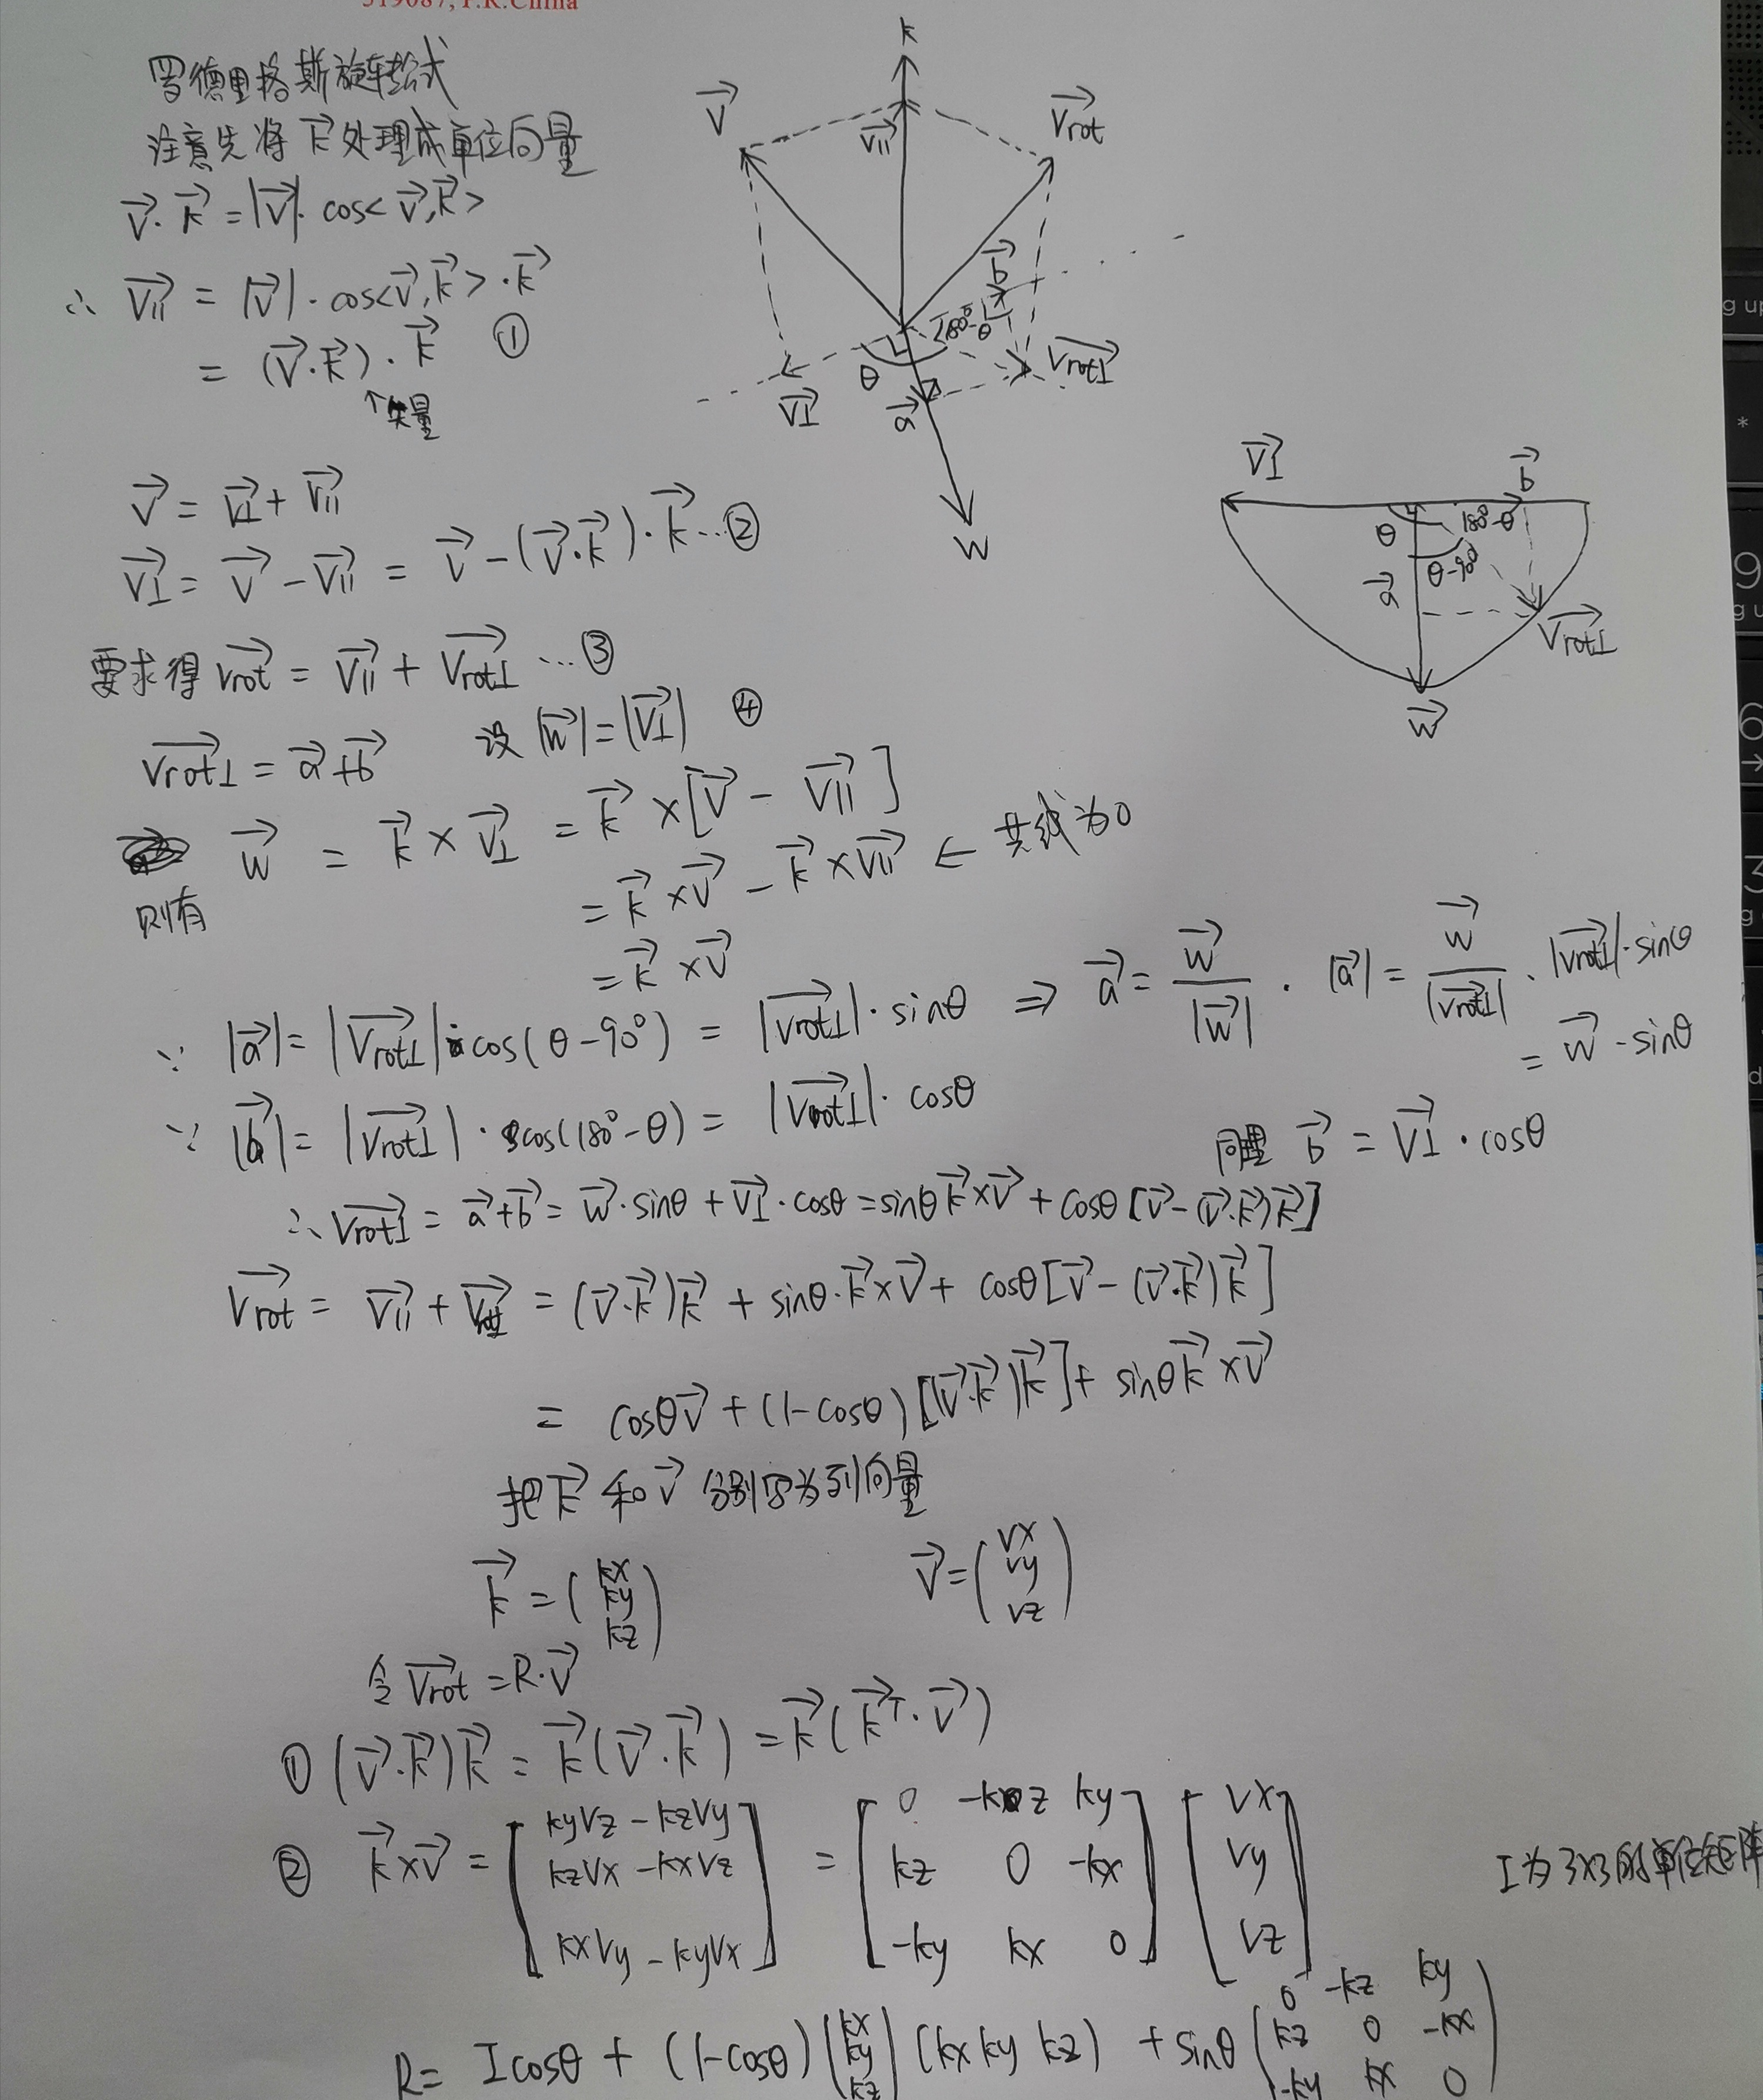 519087, P.R.China
罗德里格斯旋转公式
注意先将 k⃗ 处理成单位向量
v⃗·k⃗ = |v⃗|·cos<v⃗,k⃗>
∴ v∥⃗ = |v⃗|·cos<v⃗,k⃗>·k⃗
= (v⃗·k⃗)·k⃗ ①
↑矢量
v⃗ = v⊥⃗ + v∥⃗
v⊥⃗ = v⃗ - v∥⃗ = v⃗ - (v⃗·k⃗)·k⃗ …②
要求得 vrot⃗ = v∥⃗ + vrot⊥⃗ …③
vrot⊥⃗ = a⃗+b⃗ 设 |w⃗| = |v⊥⃗| ④
w⃗ = k⃗ × v⊥⃗ = k⃗ × [v⃗ - v∥⃗]
则有
= k⃗ × v⃗ - k⃗ × v∥⃗ ← 共线为0
= k⃗ × v⃗
∵ |a⃗| = |vrot⊥⃗|·cos(θ-90°) = |vrot⊥⃗|·sinθ ⇒ a⃗ = w⃗/|w⃗| · |a⃗| = w⃗/|vrot⊥⃗| · |vrot⊥⃗|·sinθ
= w⃗·sinθ
∵ |b⃗| = |vrot⊥⃗|·cos(180°-θ) = |vrot⊥⃗|·cosθ
同理 b⃗ = v⊥⃗·cosθ
∴ vrot⊥⃗ = a⃗+b⃗ = w⃗·sinθ + v⊥⃗·cosθ = sinθ k⃗×v⃗ + cosθ[v⃗-(v⃗·k⃗)k⃗]
vrot⃗ = v∥⃗ + vrot⊥⃗ = (v⃗·k⃗)k⃗ + sinθ·k⃗×v⃗ + cosθ[v⃗-(v⃗·k⃗)k⃗]
= cosθv⃗ + (1-cosθ)[(v⃗·k⃗)k⃗] + sinθk⃗×v⃗
把 k⃗ 和 v⃗ 分别写为列向量
k⃗ = (kx ky kz) v⃗ = (vx vy vz)
令 vrot⃗ = R·v⃗
① (v⃗·k⃗)k⃗ = k⃗(v⃗·k⃗) = k⃗(k⃗ᵀ·v⃗)
② k⃗×v⃗ = [kyvz - kzvy
kzvx - kxvz
kxvy - kyvx] = [0 -kz ky
kz 0 -kx
-ky kx 0] [vx
vy
vz]
I为3×3的单位矩阵
R = Icosθ + (1-cosθ)(kx ky kz)(kx ky kz) + sinθ(0 -kz ky
kz 0 -kx
-ky kx 0)
k
v⃗
v∥⃗
vrot⃗
b⃗
180°-θ
θ
v⊥⃗
a⃗
vrot⊥⃗
w
v⊥⃗
b⃗
θ
180°-θ
θ-90°
a⃗
vrot⊥⃗
w⃗
g up
*
9
g u
6
→
3
g
d